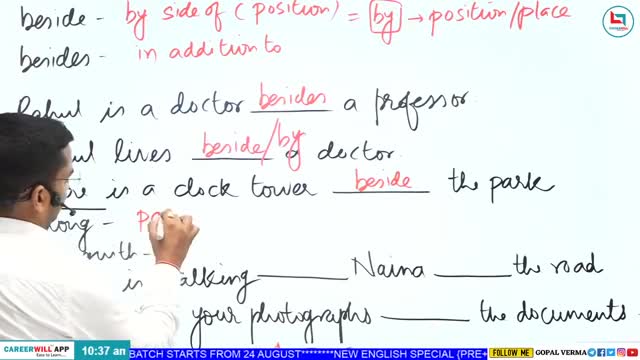 beside - by side of (position) = by → position/place
besides - in addition to
CAREERWILL
Rahul is a doctor besides a professor.
lives beside/by a doctor.
is a clock tower beside the park
- po
with -
is walking ______ Naina ______ the road
your photographs ______ the documents.
CAREERWILL APP
10:37 an
BATCH STARTS FROM 24 AUGUST********NEW ENGLISH SPECIAL (PRE+
FOLLOW ME
GOPAL VERMA